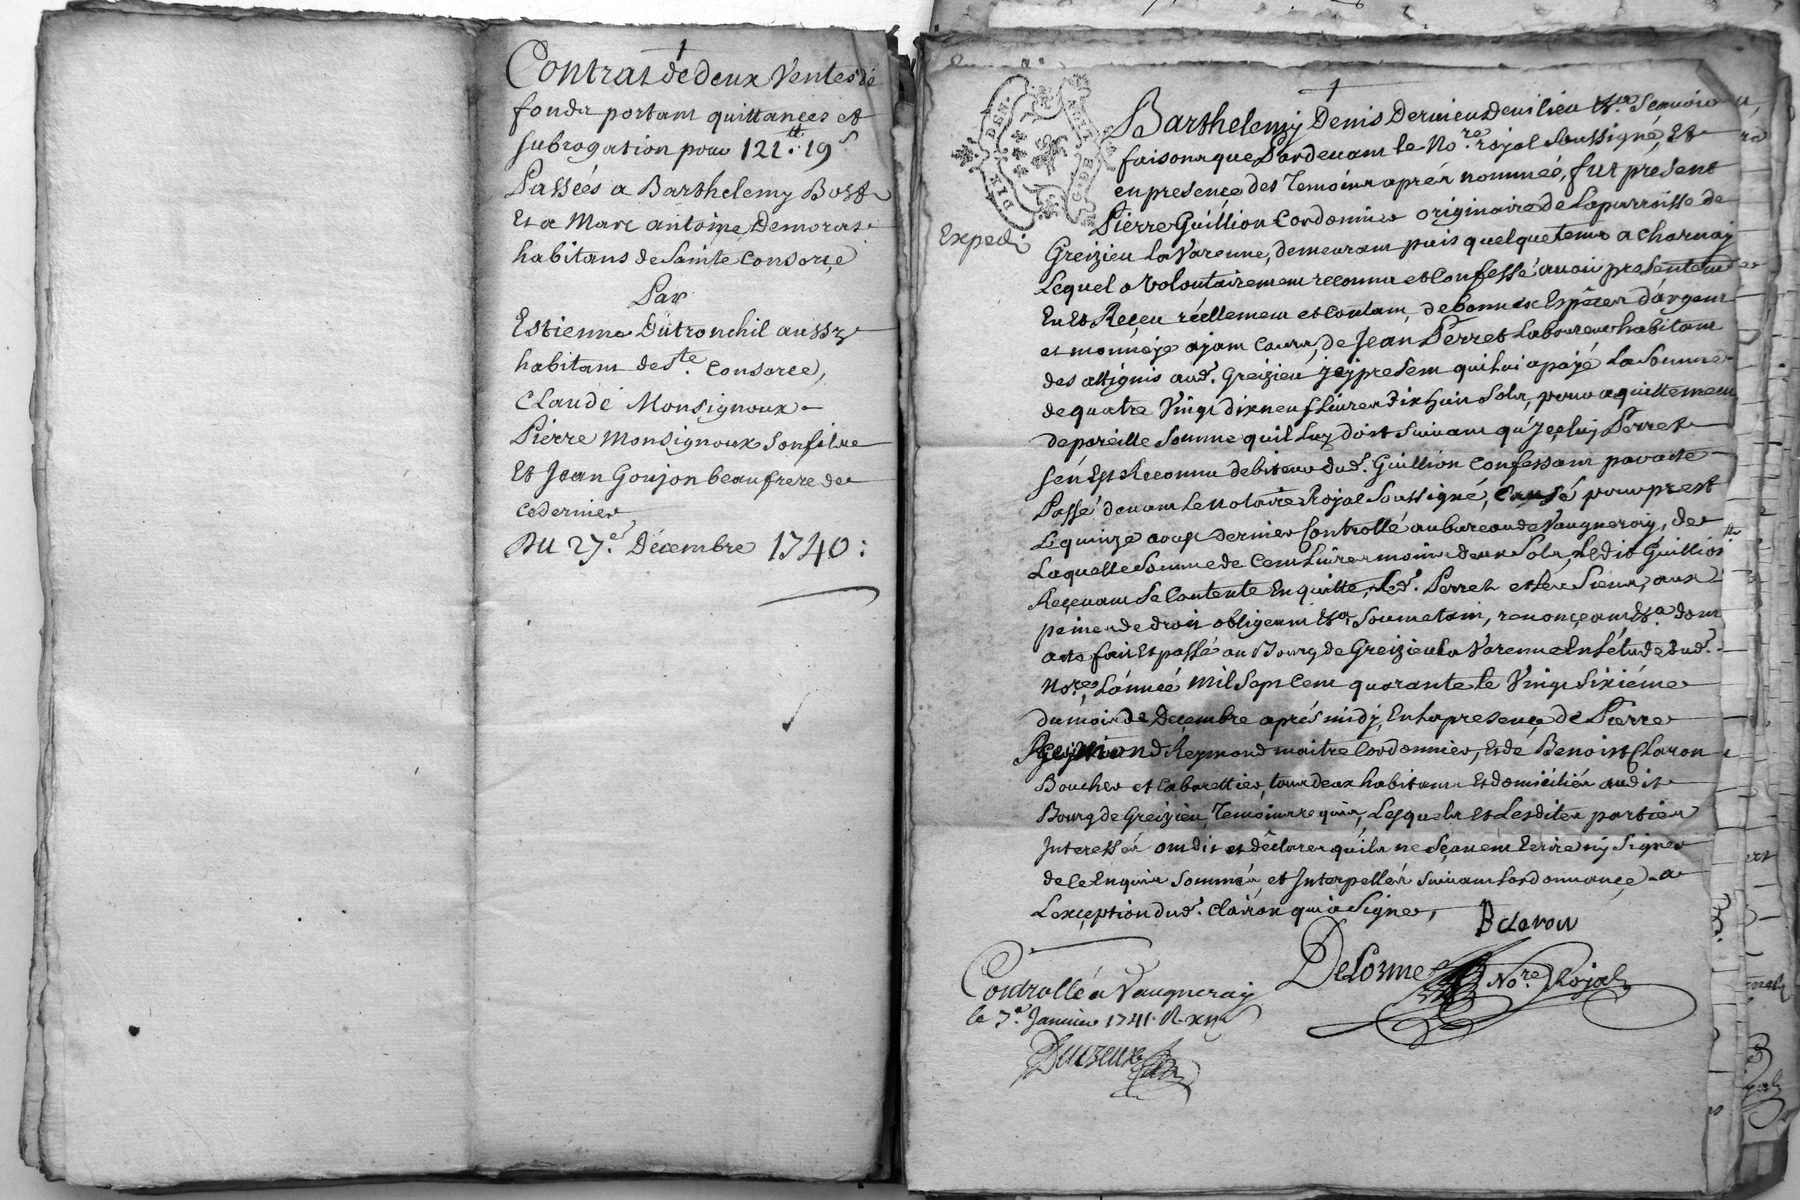 Contrat de deux Ventes de
fonds portant quittances et
subrogation pour 121.tt 19s
Passées a Barthelemy Bost
Et a Marc antoine Demoras
habitans de Sainte Consorce
Par
Estienne Dutronchil aussy
habitant de Ste. Consorce,
Claude Monsignoux
Pierre Monsignoux son fils
Et Jean Goujon beaufrere de
ce dernier
Du 27e. Décembre 1740:
Expedié
Barthelemy Denis Dervieu Scavoir
faisons que Pardevant le Nore. royal Soussigné, Et
en presence des Temoins aprés nommés, fut present
Pierre Guillion Cordonnier originaire de La parroisse de
Greizieu la Varenne, demeurant puis quelque tems a charnay
Lequel a volontairement reconnu et Confessé avoir presentement
Eu Et Reçeu réellement et Contant, de bonnes Espéces d'argent
et monnoye ayant Cours, de Jean Perret Laboureur habitant
des attignis aud. Greizieu jcy present qui lui a payé La Somme
de quatre Vingt dix neuf Livres dix huit Sols, pour aquittement
de pareille Somme quil Luy doit Suivant qu'Jçeluy Perret
s'en Est Reconnu debiteur dud. Guillion Confessant par acte
Passé devant Le Notaire Royal Soussigné, Causé pour prest
Le quinze aoust dernier Controllé au bureau de Vaugneray, de
Laquelle Somme de Cent Livres moins deux Sols, Ledit Guillion
Reçevant Se Contente En quitte, Led. Perret et les Siens, aux
peines de droit obligeant Soumetant, renonçeant &a. dont
acte fait Et passé au Bourg de Greizieu la Varenne En L'étude dud.
Nore. L'année mil Sept Cent quarante le Vingt Sixiéme
du mois de Decembre aprés midy, En la presence de Pierre
Reymond maitre Cordonnier, Et de Benoist Claron
Boucher et Cabarettier, tous deux habitans Et domiciliés audit
Bourg de Greizieu, Temoins requis, Lesquels et Lesdites parties
Interessés ont dit et déclarer qu'ils ne Sçavent Ecrire ny Signer
de Ce Enquis Sommés, et Interpellés Suivant L'ordonnance, a
L'exçeption dud. Clairon qui a Signer,
B claron
DeLorme Nore. Royal
Controllé a Vaugneray
le 7e. Janvier 1741. R